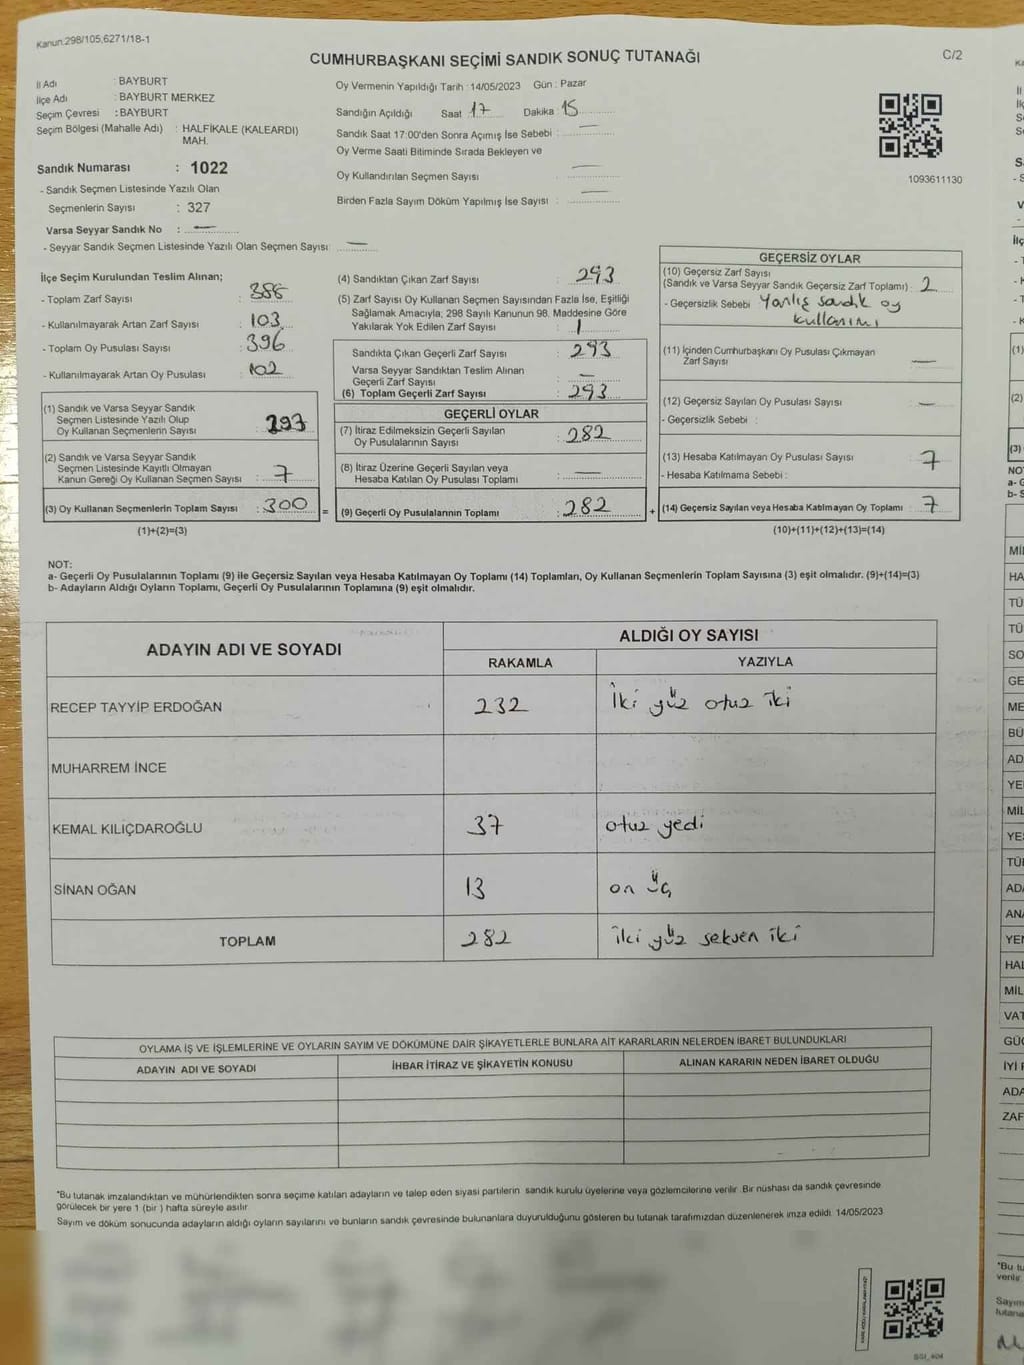 Kanun:298/105,6271/18-1
CUMHURBAŞKANI SEÇİMİ SANDIK SONUÇ TUTANAĞI
C/2
İl Adı : BAYBURT
İlçe Adı : BAYBURT MERKEZ
Seçim Çevresi : BAYBURT
Seçim Bölgesi (Mahalle Adı) : HALFİKALE (KALEARDI)
MAH.
Sandık Numarası : 1022
- Sandık Seçmen Listesinde Yazılı Olan
Seçmenlerin Sayısı : 327
Varsa Seyyar Sandık No : —
- Seyyar Sandık Seçmen Listesinde Yazılı Olan Seçmen Sayısı: —
Oy Vermenin Yapıldığı Tarih : 14/05/2023 Gün : Pazar
Sandığın Açıldığı Saat : 17 Dakika : 15
Sandık Saat 17:00'den Sonra Açımış İse Sebebi : —
Oy Verme Saati Bitiminde Sırada Bekleyen ve
Oy Kullandırılan Seçmen Sayısı : —
Birden Fazla Sayım Döküm Yapılmış İse Sayısı : —
1093611130
İlçe Seçim Kurulundan Teslim Alınan;
- Toplam Zarf Sayısı :
- Kullanılmayarak Artan Zarf Sayısı : 103
- Toplam Oy Pusulası Sayısı : 396
- Kullanılmayarak Artan Oy Pusulası : 102
(1) Sandık ve Varsa Seyyar Sandık
Seçmen Listesinde Yazılı Olup
Oy Kullanan Seçmenlerin Sayısı : 293
(2) Sandık ve Varsa Seyyar Sandık
Seçmen Listesinde Kayıtlı Olmayan
Kanun Gereği Oy Kullanan Seçmen Sayısı : 7
(3) Oy Kullanan Seçmenlerin Toplam Sayısı : 300 =
(1)+(2)=(3)
(4) Sandıktan Çıkan Zarf Sayısı : 293
(5) Zarf Sayısı Oy Kullanan Seçmen Sayısından Fazla İse, Eşitliği
Sağlamak Amacıyla; 298 Sayılı Kanunun 98. Maddesine Göre
Yakılarak Yok Edilen Zarf Sayısı : 1
Sandıkta Çıkan Geçerli Zarf Sayısı : 293
Varsa Seyyar Sandıktan Teslim Alınan
Geçerli Zarf Sayısı : —
(6) Toplam Geçerli Zarf Sayısı : 293
GEÇERLİ OYLAR
(7) İtiraz Edilmeksizin Geçerli Sayılan
Oy Pusulalarının Sayısı : 282
(8) İtiraz Üzerine Geçerli Sayılan veya
Hesaba Katılan Oy Pusulası Toplamı : —
(9) Geçerli Oy Pusulalarının Toplamı : 282 +
GEÇERSİZ OYLAR
(10) Geçersiz Zarf Sayısı
(Sandık ve Varsa Seyyar Sandık Geçersiz Zarf Toplamı) : 2
- Geçersizlik Sebebi : Yanlış sandık oy
kullanımı
(11) İçinden Cumhurbaşkanı Oy Pusulası Çıkmayan
Zarf Sayısı : —
(12) Geçersiz Sayılan Oy Pusulası Sayısı : —
- Geçersizlik Sebebi :
(13) Hesaba Katılmayan Oy Pusulası Sayısı : 7
- Hesaba Katılmama Sebebi :
(14) Geçersiz Sayılan veya Hesaba Katılmayan Oy Toplamı : 7
(10)+(11)+(12)+(13)=(14)
NOT:
a- Geçerli Oy Pusulalarının Toplamı (9) ile Geçersiz Sayılan veya Hesaba Katılmayan Oy Toplamı (14) Toplamları, Oy Kullanan Seçmenlerin Toplam Sayısına (3) eşit olmalıdır. (9)+(14)=(3)
b- Adayların Aldığı Oyların Toplamı, Geçerli Oy Pusulalarının Toplamına (9) eşit olmalıdır.
ADAYIN ADI VE SOYADI
ALDIĞI OY SAYISI
RAKAMLA YAZIYLA
RECEP TAYYİP ERDOĞAN 232 İki yüz otuz iki
MUHARREM İNCE
KEMAL KILIÇDAROĞLU 37 otuz yedi
SİNAN OĞAN 13 on üç
TOPLAM 282 iki yüz seksen iki
OYLAMA İŞ VE İŞLEMLERİNE VE OYLARIN SAYIM VE DÖKÜMÜNE DAİR ŞİKAYETLERLE BUNLARA AİT KARARLARIN NELERDEN İBARET BULUNDUKLARI
ADAYIN ADI VE SOYADI İHBAR İTİRAZ VE ŞİKAYETİN KONUSU ALINAN KARARIN NEDEN İBARET OLDUĞU
*Bu tutanak imzalandıktan ve mühürlendikten sonra seçime katılan adayların ve talep eden siyasi partilerin sandık kurulu üyelerine veya gözlemcilerine verilir. Bir nüshası da sandık çevresinde
görülecek bir yere 1 (bir ) hafta süreyle asılır.
Sayım ve döküm sonucunda adayların aldığı oyların sayılarını ve bunların sandık çevresinde bulunanlara duyurulduğunu gösteren bu tutanak tarafımızdan düzenlenerek imza edildi. 14/05/2023